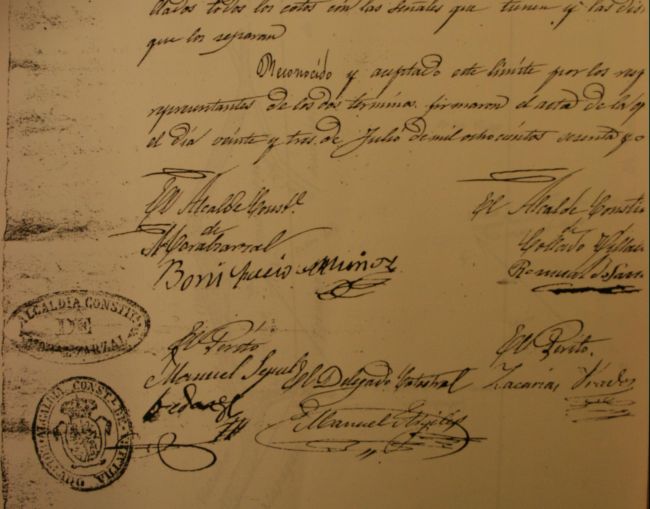 dados todos los cotos con las señales que tienen y las dis
que los separan
Reconocido y aceptado este limite por los resp
representantes de los dos terminos firmaron el acta de la op
el día veinte y tres de Julio de mil ochocientos sesenta y o
El Alcalde Constl.
de
Moralzarzal
Bonifacio Muñoz
El Alcalde Constitu
Collado Villa
Roman de San
ALCALDÍA CONSTITU
DE
MORALZARZAL
El Perito
Manuel
El Delegado Catastral
Manuel
El Perito.
Zacarías Prados
ALCALDIA CONSTL. DE